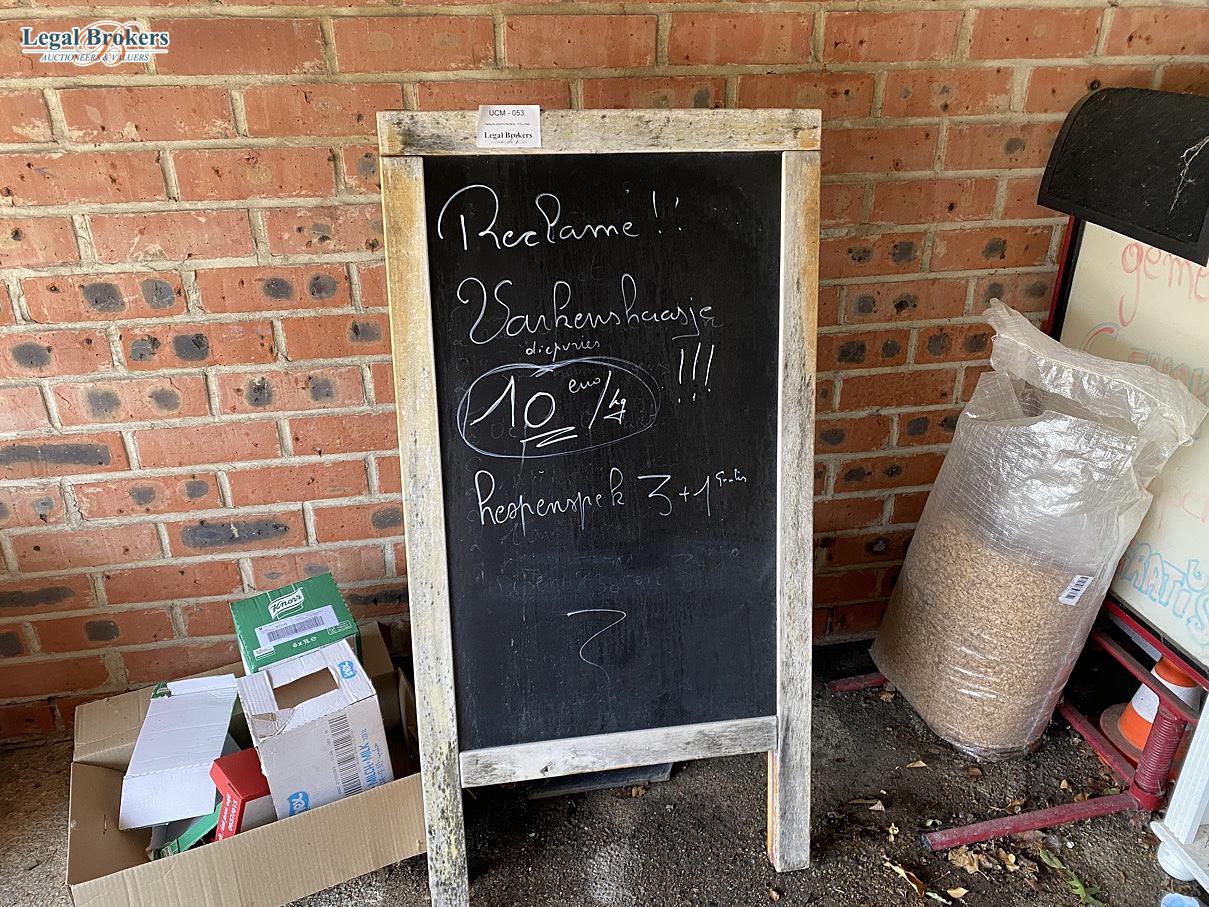 Legal Brokers
AUCTIONEERS & VALUERS
UCM - 053
Legal Brokers
Reclame !!
Varkenshaasje
diepvries
10 euro/kg !!!
hespenspek 3+1 Gratis
Knorr
6 x 1L e
geme
GRATIS